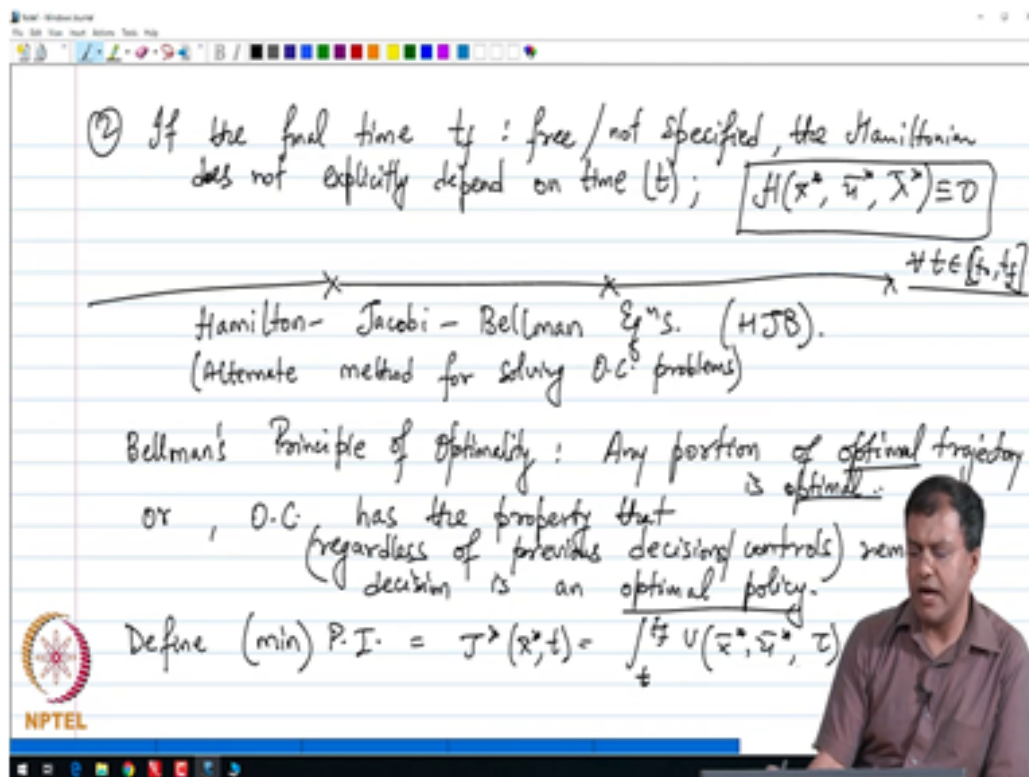 ② If the final time tf : free / not specified, the Hamiltonian
does not explicitly depend on time (t) ; H(x̄*, ū*, λ̄*) ≡ 0
∀ t ∈ [t₀, tf]
Hamilton - Jacobi - Bellman Eqⁿs. (HJB).
(Alternate method for solving O.C. problems)
Bellman's Principle of Optimality : Any portion of optimal trajectory
is optimal.
or , O.C. has the property that
(regardless of previous decision/controls) rem
decision is an optimal policy.
Define (min) P.I. = J*(x*, t) = ∫ₜ^tf V(x̄*, ū*, τ)
NPTEL